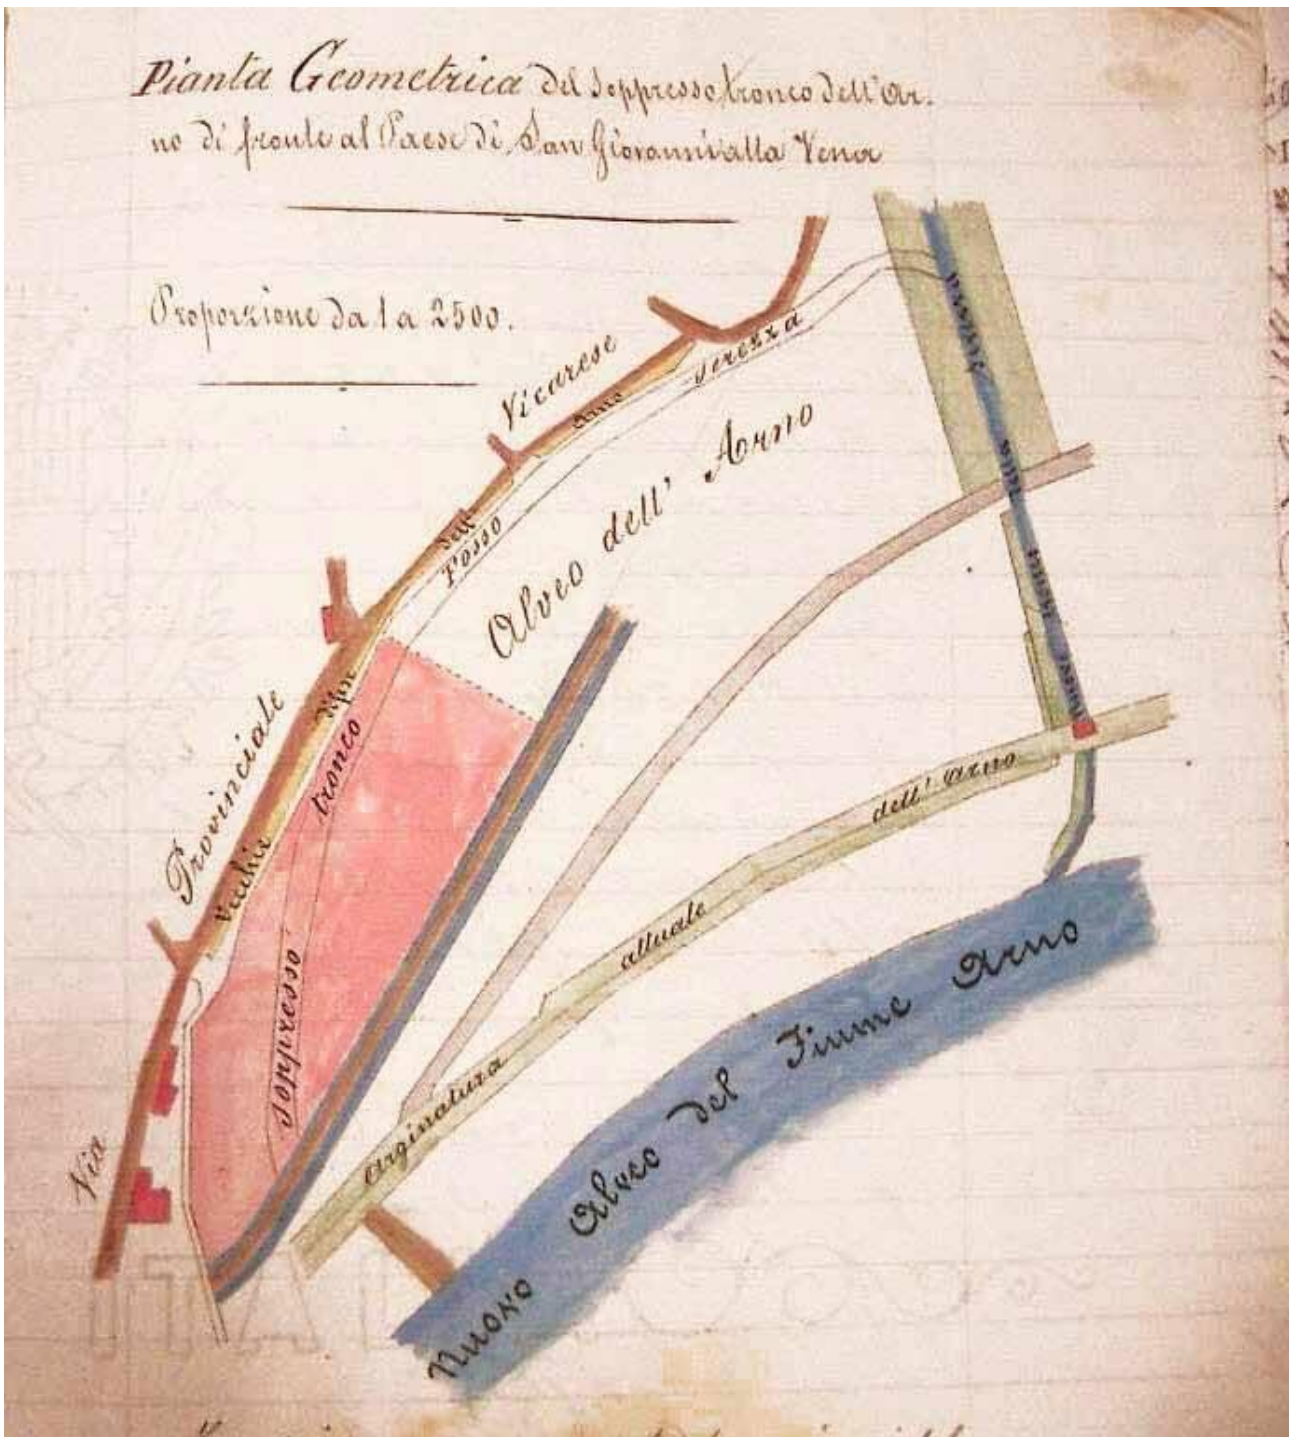 Pianta Geometrica del soppresso tronco dell'Ar-
no di fronte al Paese di San Giovanni alla Vena
Proporzione da 1 a 2500.
Via Provinciale Vicarese
Vecchie dell' Arno
soppresso tronco
Fosso Serezza
Alveo dell' Arno
Nuova della Serezza
Arginatura attuale dell' Arno
Nuovo Alveo del Fiume Arno